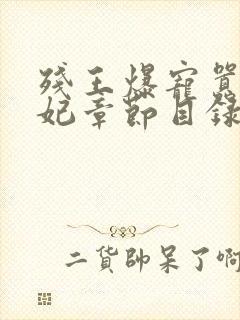 残王爆寵囂
妃章節目錄
二貨帥呆了啊